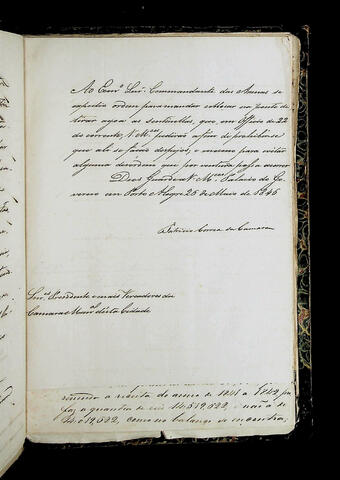 Ao Exmo. Snr. Commandante das Armas se
expedio ordem para mandar collocar na ponte de
tirar agoa as sentinellas, que em Officio de 22
do corrente, V Mces pedirão a fim de prohibir-se
que ali se fação despejos, e mesmo para evitar
alguma desordem que por ventura possa occorrer
Deos Guarde a V Mces Palacio do Go-
verno em Porto Alegre 26 de Maio de 1846
Patricio Correa da Camara
Snres. Presidente e mais Vereadores da
Camara Munal desta Cidade
a receita do anno de 1841 a 1842
faz a quantia de 14.519,522, e não a de
14.019,522, como no balanço se encontra,